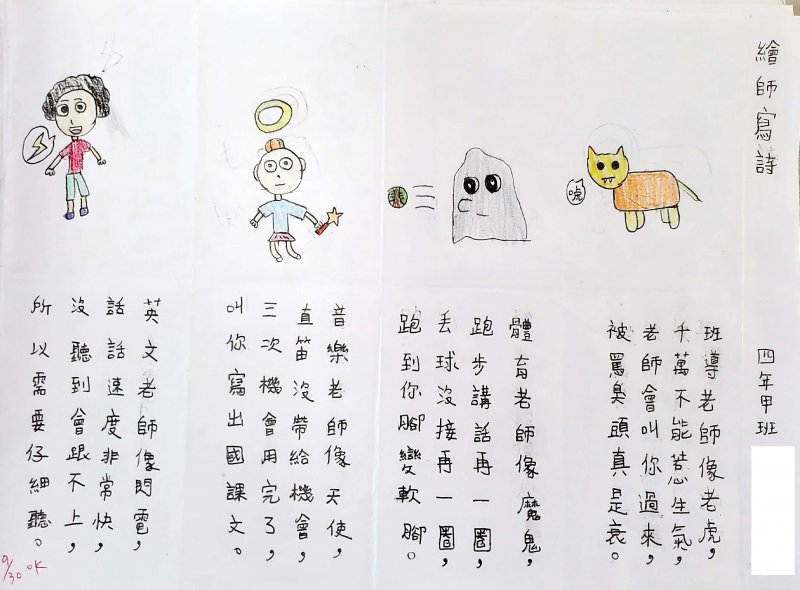 繪師寫詩
四年甲班
吼
班導老師像老虎，
千萬不能惹生氣，
老師會叫你過來，
被罵臭頭真是衰。
體育老師像魔鬼，
跑步講話再一圈，
丟球沒接再一圈，
跑到你腳變軟腳。
音樂老師像天使，
直笛沒帶給機會，
三次機會用完了，
叫你寫出國課文。
英文老師像閃電，
話話速度非常快，
沒聽到會跟不上，
所以需要仔細聽。
9/30 OK